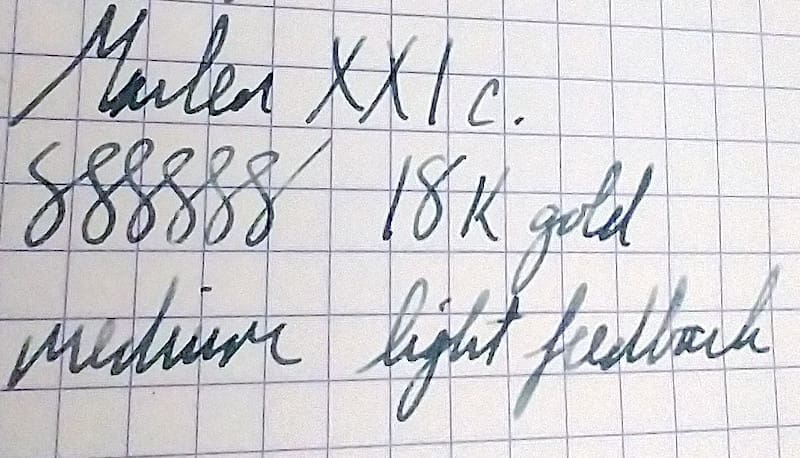 Marlen XXI c.
888888 18K gold
medium light feedback